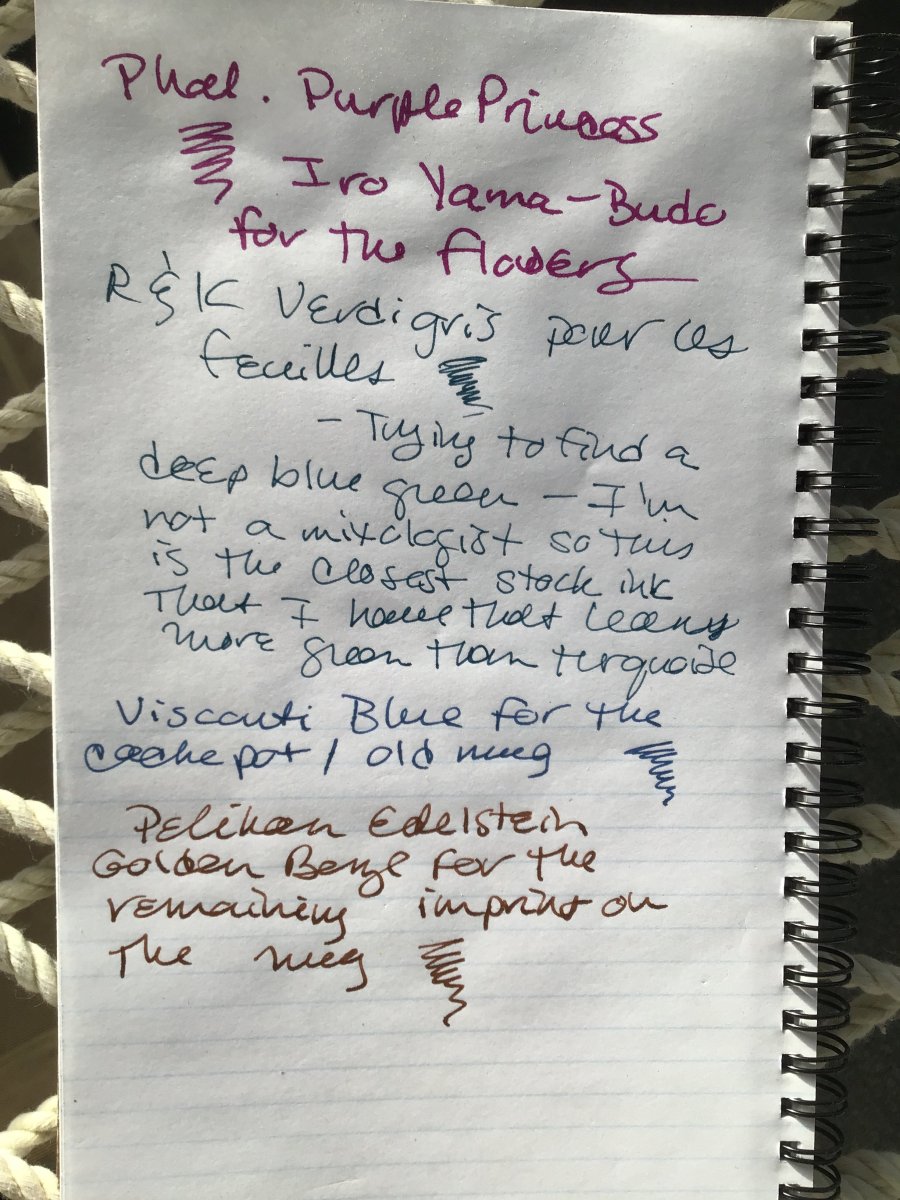 Phal. Purple Princess
Iro Yama-Budo
for the flowers
R & K Verdigris pour les
feuilles
- Trying to find a
deep blue green - I'm
not a mixologist so this
is the closest stock ink
that I have that leans
more green than turquoise
Visconti Blue for the
cachepot / old mug
Pelikan Edelstein
Golden Beryl for the
remaining imprint on
the mug